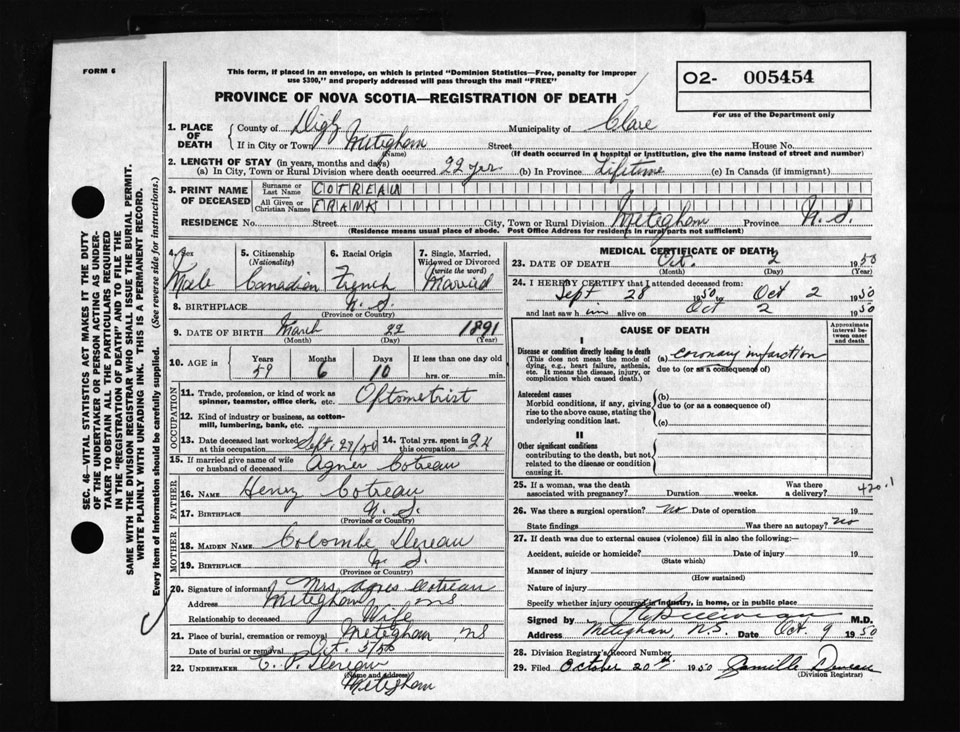 FORM 6
This form, if placed in an envelope, on which is printed "Dominion Statistics—Free, penalty for improper
use $300," and properly addressed will pass through the mail "FREE"
O2- 005454
PROVINCE OF NOVA SCOTIA—REGISTRATION OF DEATH
For use of the Department only
1. PLACE OF DEATH { County of Digby Municipality of Clare
If in City or Town Meteghan Street House No.
(Name) (If death occurred in a hospital or institution, give the name instead of street and number)
2. LENGTH OF STAY (in years, months and days)
(a) In City, Town or Rural Division where death occurred 22 yrs (b) In Province Lifetime (c) In Canada (if immigrant)
3. PRINT NAME OF DECEASED { Surname or Last Name COTREAU
All Given or Christian Names FRANK
RESIDENCE No. Street City, Town or Rural Division Meteghan Province N. S.
(Residence means usual place of abode. Post Office Address for residents in rural parts not sufficient)
4. Sex Male
5. Citizenship (Nationality) Canadian
6. Racial Origin French
7. Single, Married, Widowed or Divorced (write the word) Married
8. BIRTHPLACE N. S.
(Province or Country)
9. DATE OF BIRTH March 22 1891
(Month) (Day) (Year)
10. AGE is { Years 59 Months 6 Days 10 If less than one day old hrs. or min.
OCCUPATION
11. Trade, profession, or kind of work as spinner, teamster, office clerk, etc. Optometrist
12. Kind of industry or business, as cotton-mill, lumbering, bank, etc.
13. Date deceased last worked at this occupation Sept. 27/50 14. Total yrs. spent in 24
15. If married give name of wife or husband of deceased Agnes Cotreau
FATHER
16. NAME Henry Cotreau
17. BIRTHPLACE N. S.
(Province or Country)
MOTHER
18. MAIDEN NAME Colombe Dereau
19. BIRTHPLACE N. S.
(Province or Country)
20. Signature of informant Mrs Agnes Cotreau
Address Meteghan NS
Relationship to deceased Wife
21. Place of burial, cremation or removal Meteghan NS
Date of burial or removal Oct. 5/50
22. UNDERTAKER
(Name and address)
Meteghan
MEDICAL CERTIFICATE OF DEATH
23. DATE OF DEATH Oct. 2 1950
(Month) (Day) (Year)
24. I HEREBY CERTIFY that I attended deceased from:
Sept 28 1950 to Oct 2 1950
and last saw him alive on Oct 2 1950
CAUSE OF DEATH
Approximate interval between onset and death
I
Disease or condition directly leading to death
(This does not mean the mode of dying, e.g., heart failure, asthenia, etc. It means the disease, injury, or complication which caused death.)
(a) Coronary infarction
due to (or as a consequence of)
Antecedent causes
Morbid conditions, if any, giving rise to the above cause, stating the underlying condition last.
(b)
due to (or as a consequence of)
(c)
II
Other significant conditions
contributing to the death, but not related to the disease or condition causing it.
25. If a woman, was the death associated with pregnancy? Duration weeks. Was there a delivery? 420.1
26. Was there a surgical operation? No Date of operation 19
State findings Was there an autopsy? No
27. If death was due to external causes (violence) fill in also the following:—
Accident, suicide or homicide? Date of injury 19
(State which)
Manner of injury
(How sustained)
Nature of injury
Specify whether injury occurred in industry, in home, or in public place
Signed by M.D.
Address Meteghan, N.S. Date Oct. 9 1950
28. Division Registrar's Record Number
29. Filed October 20th 1950
(Division Registrar)
SEC. 46—VITAL STATISTICS ACT MAKES IT THE DUTY
OF THE UNDERTAKER OR PERSON ACTING AS UNDER-
TAKER TO OBTAIN ALL THE PARTICULARS REQUIRED
IN THE "REGISTRATION OF DEATH" AND TO FILE THE
SAME WITH THE DIVISION REGISTRAR WHO SHALL ISSUE THE BURIAL PERMIT.
WRITE PLAINLY WITH UNFADING INK. THIS IS A PERMANENT RECORD.
Every item of Information should be carefully supplied. (See reverse side for instructions.)